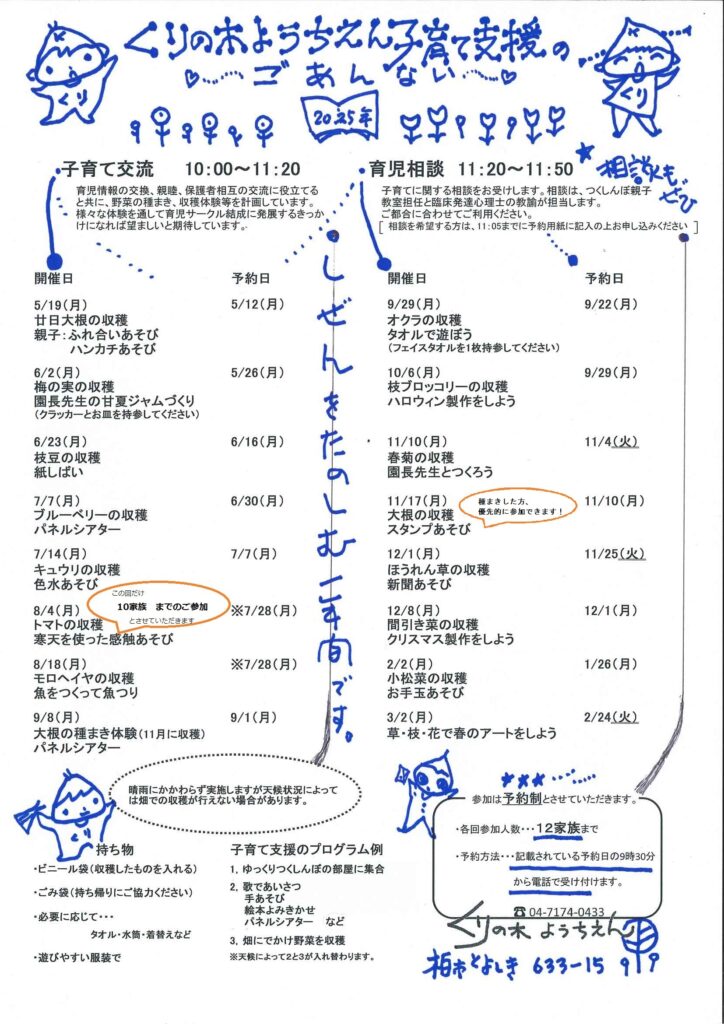 くりの木ようちえん子育て支援の
ごあんない
2025年
くり
くり
子育て交流　10:00～11:20
育児情報の交換、親睦、保護者相互の交流に役立てる
と共に、野菜の種まき、収穫体験等を計画しています。
様々な体験を通して育児サークル結成に発展するきっか
けになれば望ましいと期待しています。
育児相談　11:20～11:50
★相談もぜひ
子育てに関する相談をお受けします。相談は、つくしんぼ親子
教室担任と臨床発達心理士の教諭が担当します。
ご都合に合わせてご利用ください。
[ 相談を希望する方は、11:05までに予約用紙に記入の上お申し込みください ]
開催日　予約日
5/19(月)　5/12(月)
廿日大根の収穫
親子:ふれ合いあそび
ハンカチあそび
6/2(月)　5/26(月)
梅の実の収穫
園長先生の甘夏ジャムづくり
(クラッカーとお皿を持参してください)
6/23(月)　6/16(月)
枝豆の収穫
紙しばい
7/7(月)　6/30(月)
ブルーベリーの収穫
パネルシアター
7/14(月)　7/7(月)
キュウリの収穫
色水あそび
この回だけ
10家族　までのご参加
とさせていただきます
8/4(月)　※7/28(月)
トマトの収穫
寒天を使った感触あそび
8/18(月)　※7/28(月)
モロヘイヤの収穫
魚をつくって魚つり
9/8(月)　9/1(月)
大根の種まき体験(11月に収穫)
パネルシアター
しぜんをたのしむ二年間です。
開催日　予約日
9/29(月)　9/22(月)
オクラの収穫
タオルで遊ぼう
(フェイスタオルを1枚持参してください)
10/6(月)　9/29(月)
枝ブロッコリーの収穫
ハロウィン製作をしよう
11/10(月)　11/4(火)
春菊の収穫
園長先生とつくろう
11/17(月)　11/10(月)
大根の収穫
スタンプあそび
種まきした方、
優先的に参加できます!
12/1(月)　11/25(火)
ほうれん草の収穫
新聞あそび
12/8(月)　12/1(月)
間引き菜の収穫
クリスマス製作をしよう
2/2(月)　1/26(月)
小松菜の収穫
お手玉あそび
3/2(月)　2/24(火)
草・枝・花で春のアートをしよう
晴雨にかかわらず実施しますが天候状況によって
は畑での収穫が行えない場合があります。
くり
持ち物
・ビニール袋(収穫したものを入れる)
・ごみ袋(持ち帰りにご協力ください)
・必要に応じて・・・
タオル・水筒・着替えなど
・遊びやすい服装で
子育て支援のプログラム例
1. ゆっくりつくしんぼの部屋に集合
2. 歌であいさつ
手あそび
絵本よみきかせ
パネルシアター　など
3. 畑にでかけ野菜を収穫
※天候によって2と3が入れ替わります。
★★★
参加は予約制とさせていただきます。
・各回参加人数・・・12家族まで
・予約方法・・・記載されている予約日の9時30分
から電話で受け付けます。
☎04-7174-0433
くりの木 ようちえん
柏市とよしき 633-15